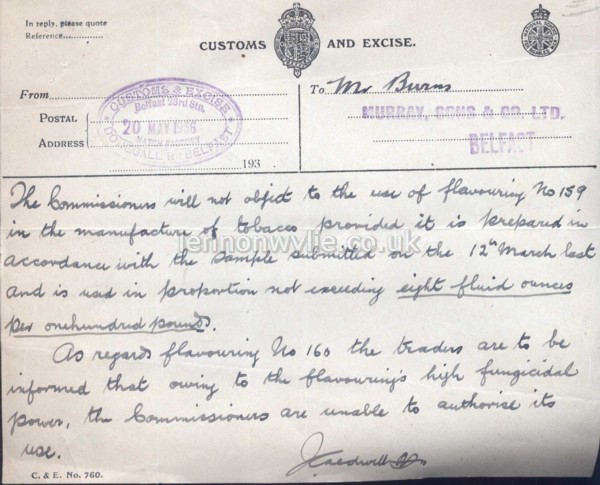 In reply, please quote
Reference
CUSTOMS AND EXCISE.
From
To Mr Burns
POSTAL
ADDRESS
CUSTOMS & EXCISE
Belfast 23rd Stn.
20 MAY 1936
BELFAST
MURRAY, SONS & CO. LTD,
BELFAST
193
The Commissioners will not object to the use of flavouring No 159
in the manufacture of tobacco provided it is prepared in
accordance with the sample submitted on the 12th March last
and is used in proportion not exceeding eight fluid ounces
per onehundred pounds.
As regards flavouring No 160 the traders are to be
informed that owing to the flavouring's high fungicidal
power, the Commissioners are unable to authorise its
use.
C. & E. No. 760.
lennonwylie.co.uk